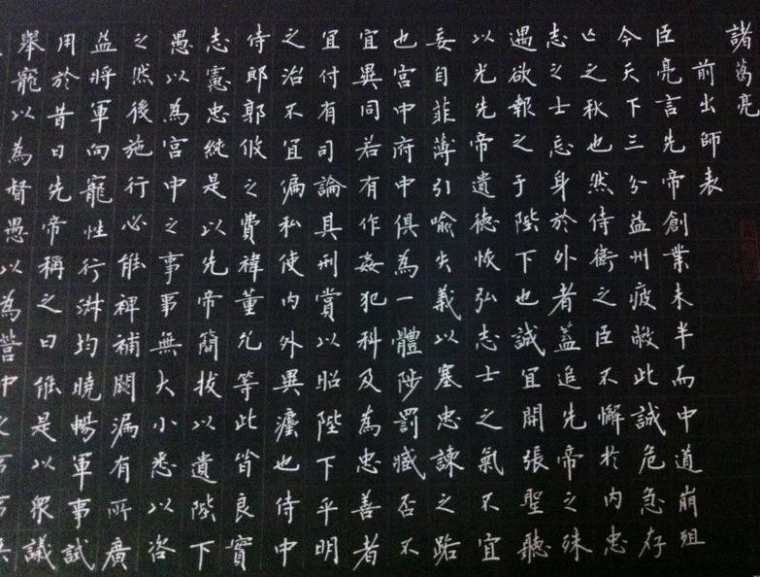 諸葛亮
前出師表
臣亮言先帝創業未半而中道崩殂
今天下三分益州疲敝此誠危急存
亡之秋也然侍衛之臣不懈於內忠
志之士忘身於外者蓋追先帝之殊
遇欲報之于陛下也誠宜開張聖聽
以光先帝遺德恢弘志士之氣不宜
妄自菲薄引喻失義以塞忠諫之路
也宮中府中俱為一體陟罰臧否不
宜異同若有作姦犯科及為忠善者
宜付有司論其刑賞以昭陛下平明
之治不宜偏私使內外異灋也侍中
侍郎郭攸之費禕董允等此皆良實
志慮忠純是以先帝簡拔以遺陛下
愚以為宮中之事事無大小悉以咨
之然後施行必能裨補闕漏有所廣
益將軍向寵性行淑均曉暢軍事試
用於昔日先帝稱之曰能是以眾議
舉寵以為督愚以為營中之